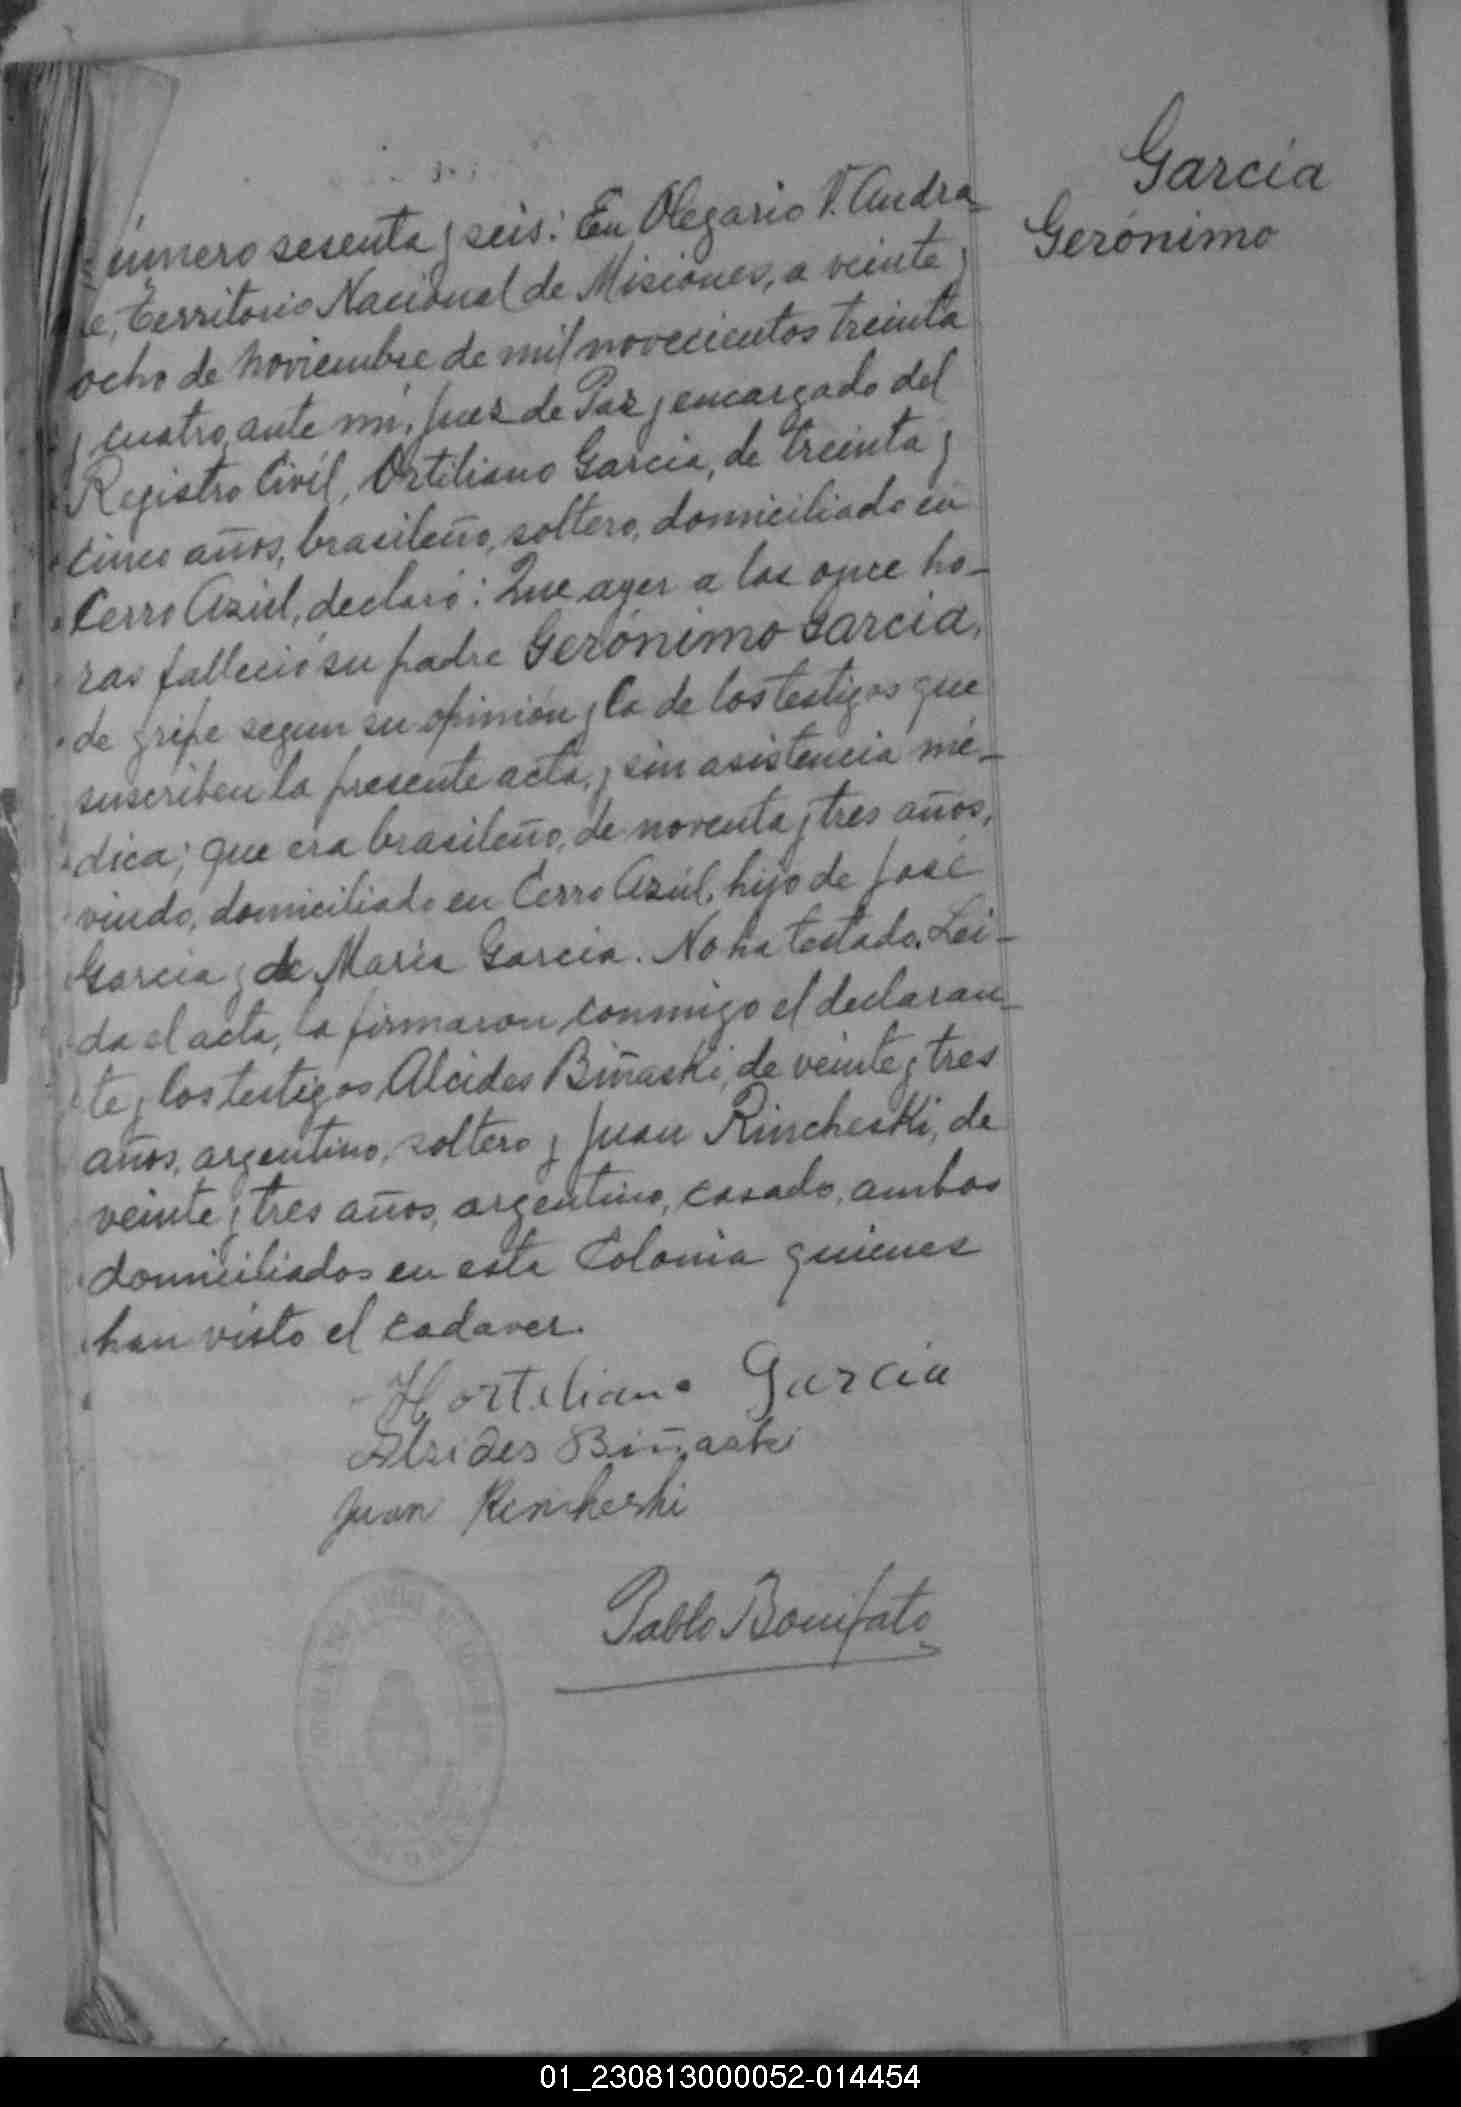 García
Gerónimo
Número sesenta y seis: En Olegario V. Andra-
de, Territorio Nacional de Misiones, a veinte y
ocho de noviembre de mil novecientos treinta
y cuatro, ante mí, Juez de Paz y encargado del
Registro Civil, Ortiliano Garcia, de treinta y
cinco años, brasileño, soltero, domiciliado en
Cerro Azúl, declaró: Que ayer a las once ho-
ras falleció su padre Gerónimo Garcia,
de gripe segun su opinión y la de los testigos que
suscriben la presente acta, y sin asistencia mé-
dica; que era brasileño, de noventa y tres años,
viudo, domiciliado en Cerro Azúl, hijo de José
Garcia y de María Garcia. No ha testado. Lei-
da el acta, la firmaron conmigo el declaran-
te y los testigos Alcides Biñaski, de veinte y tres
años, argentino, soltero y Juan Rincheski, de
veinte y tres años, argentino, casado, ambos
domiciliados en esta Colonia quienes
han visto el cadaver.
Hortiliano Garcia
Alsides Biñaski
Juan Rincheski
Pablo Bonifato
01_230813000052-014454